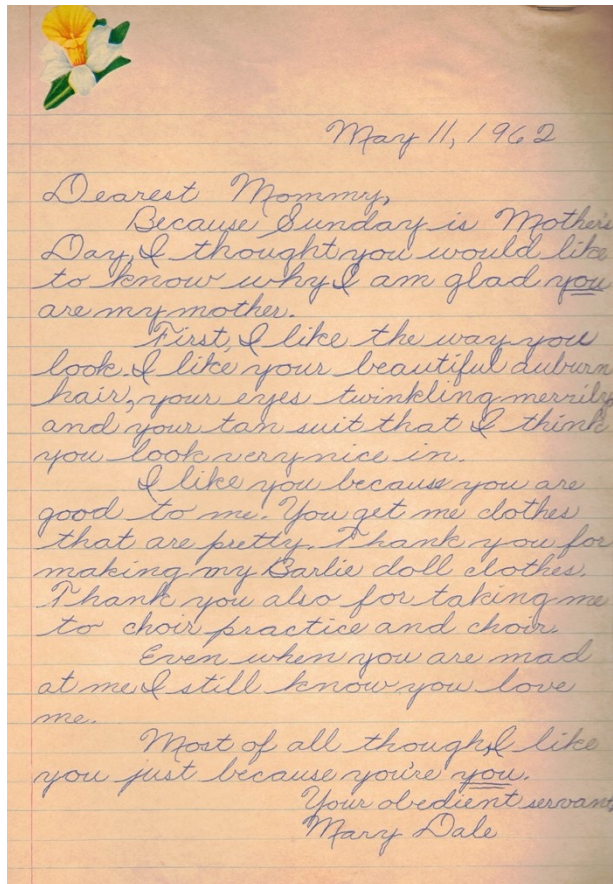 May 11, 1962
Dearest Mommy,
Because Sunday is Mothers
Day, I thought you would like
to know why I am glad you
are my mother.
First, I like the way you
look. I like your beautiful auburn
hair, your eyes twinkling merrily,
and your tan suit that I think
you look very nice in.
I like you because you are
good to me. You get me clothes
that are pretty. Thank you for
making my Barlie doll clothes.
Thank you also for taking me
to choir practice and choir.
Even when you are mad
at me I still know you love
me.
Most of all though, I like
you just because you're you.
Your obedient servant,
Mary Dale